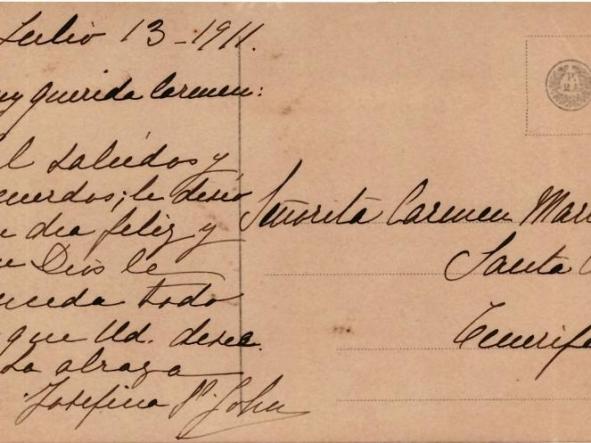 Julio 13-1911.
uy querida Carmen:
il saludos y
cuerdos; le deseo
n dia feliz y
ue Dios le
nceda todo
que Ud. desea.
La abraza
Josefina P. John
Señorita Carmen Mar
Santa C
Tenerife